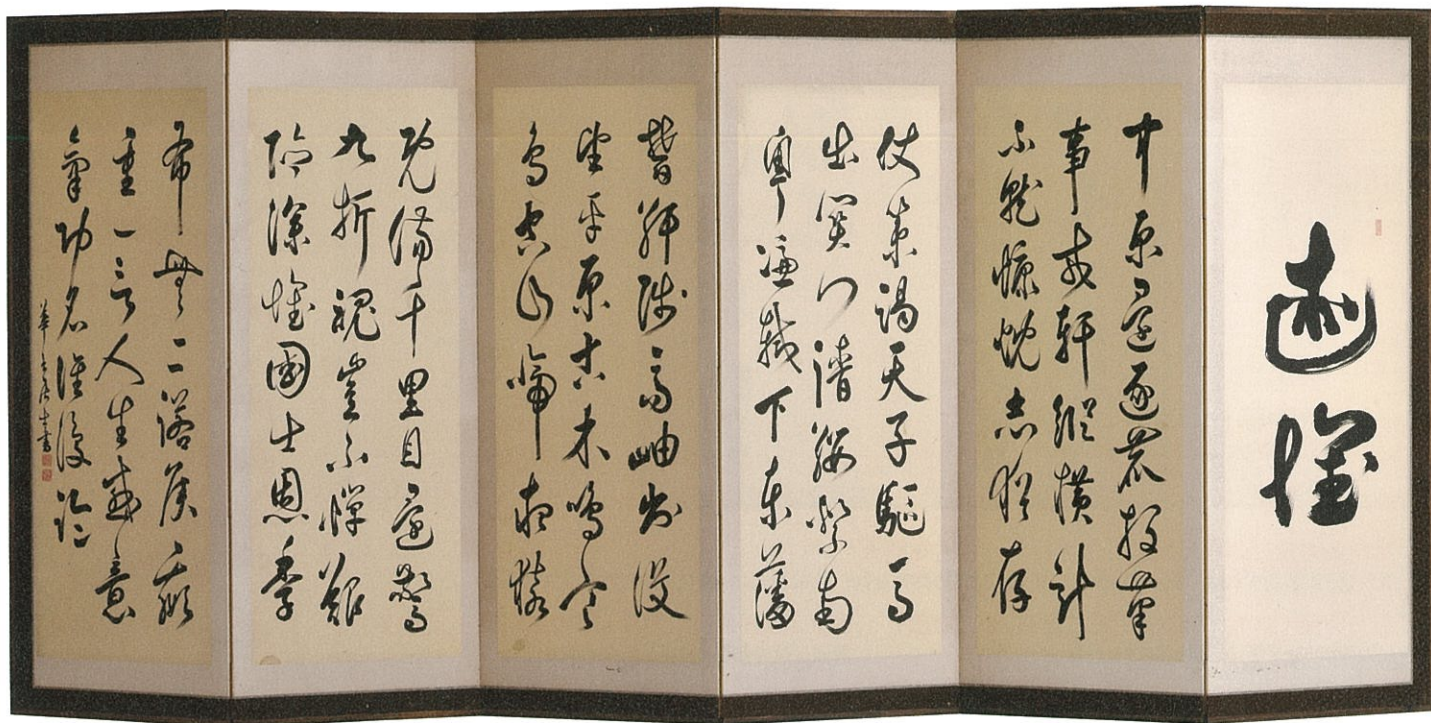 述懷
中原還逐鹿投筆
事戎軒縱横計
不就慷慨志猶存
仗策謁天子驅馬
出關門請纓繫南
粤憑軾下東藩
鬱紆陟高岫出没
望平原古木鳴寒
鳥空山啼夜猿
既傷千里目還驚
九折魂豈不憚艱
險深懷國士恩季
布無二諾侯嬴
重一言人生感意
氣功名誰復論